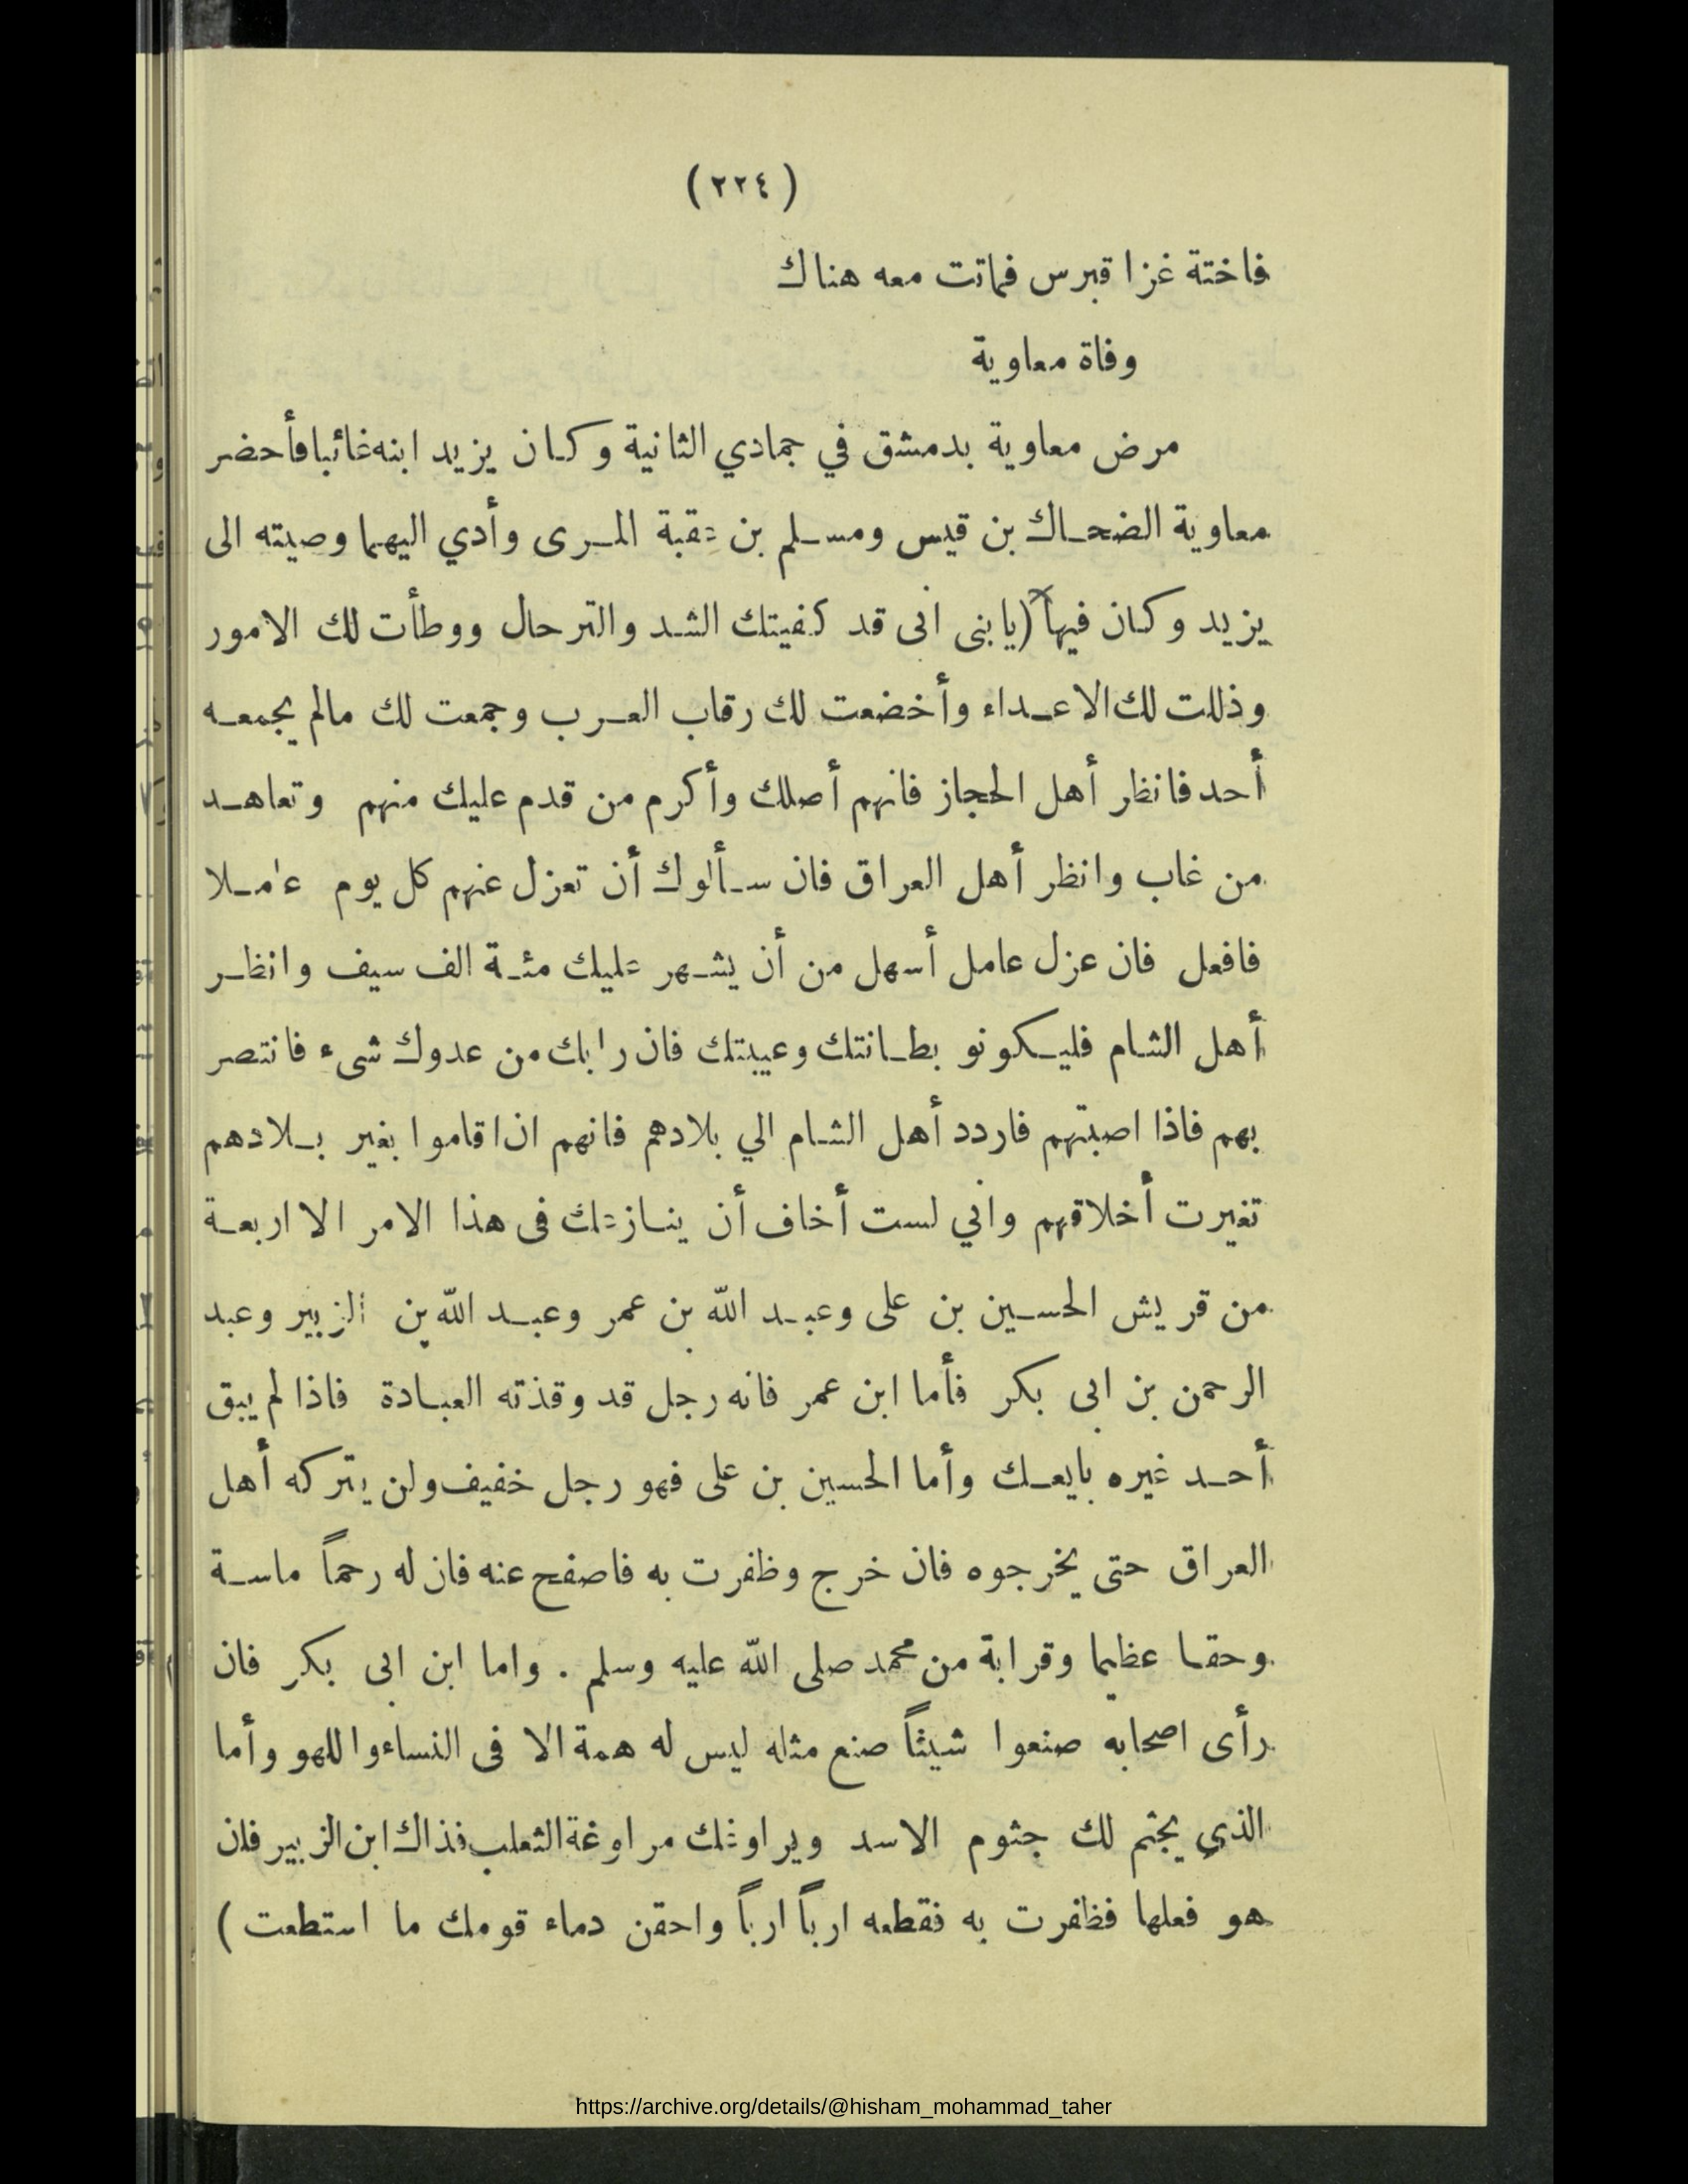 (٢٢٤)
فاختة غزا قبرس فماتت معه هناك
وفاة معاوية
مرض معاوية بدمشق في جمادي الثانية وكان يزيد ابنه غائبا فأحضر
معاوية الضحاك بن قيس ومسلم بن عقبة المرى وأدي اليهما وصيته الى
يزيد وكان فيها (يابنى انى قد كفيتك الشد والترحال ووطأت لك الامور
وذللت لك الاعداء وأخضعت لك رقاب العرب وجمعت لك مالم يجمعه
أحد فانظر أهل الحجاز فانهم أصلك وأكرم من قدم عليك منهم وتعاهد
من غاب وانظر أهل العراق فان سألوك أن تعزل عنهم كل يوم عاملا
فافعل فان عزل عامل أسهل من أن يشهر عليك مئة الف سيف وانظر
أهل الشام فليكونو بطانتك وعيبتك فان رابك من عدوك شىء فانتصر
بهم فاذا اصبتهم فاردد أهل الشام الي بلادهم فانهم ان اقاموا بغير بلادهم
تغيرت أخلاقهم واني لست أخاف أن ينازعك فى هذا الامر الا اربعة
من قريش الحسين بن على وعبد الله بن عمر وعبد الله بن الزبير وعبد
الرحمن بن ابى بكر فأما ابن عمر فانه رجل قد وقذته العبادة فاذا لم يبق
أحد غيره بايعك وأما الحسين بن على فهو رجل خفيف ولن يتركه أهل
العراق حتى يخرجوه فان خرج وظفرت به فاصفح عنه فان له رحماً ماسة
وحقا عظيما وقرابة من محمد صلى الله عليه وسلم . واما ابن ابى بكر فان
رأى اصحابه صنعوا شيئاً صنع مثله ليس له همة الا فى النساء واللهو وأما
الذي يجثم لك جثوم الاسد ويراوغك مراوغة الثعلب فذاك ابن الزبير فان
هو فعلها فظفرت به فقطعه ارباً ارباً واحقن دماء قومك ما استطعت )
https://archive.org/details/@hisham_mohammad_taher